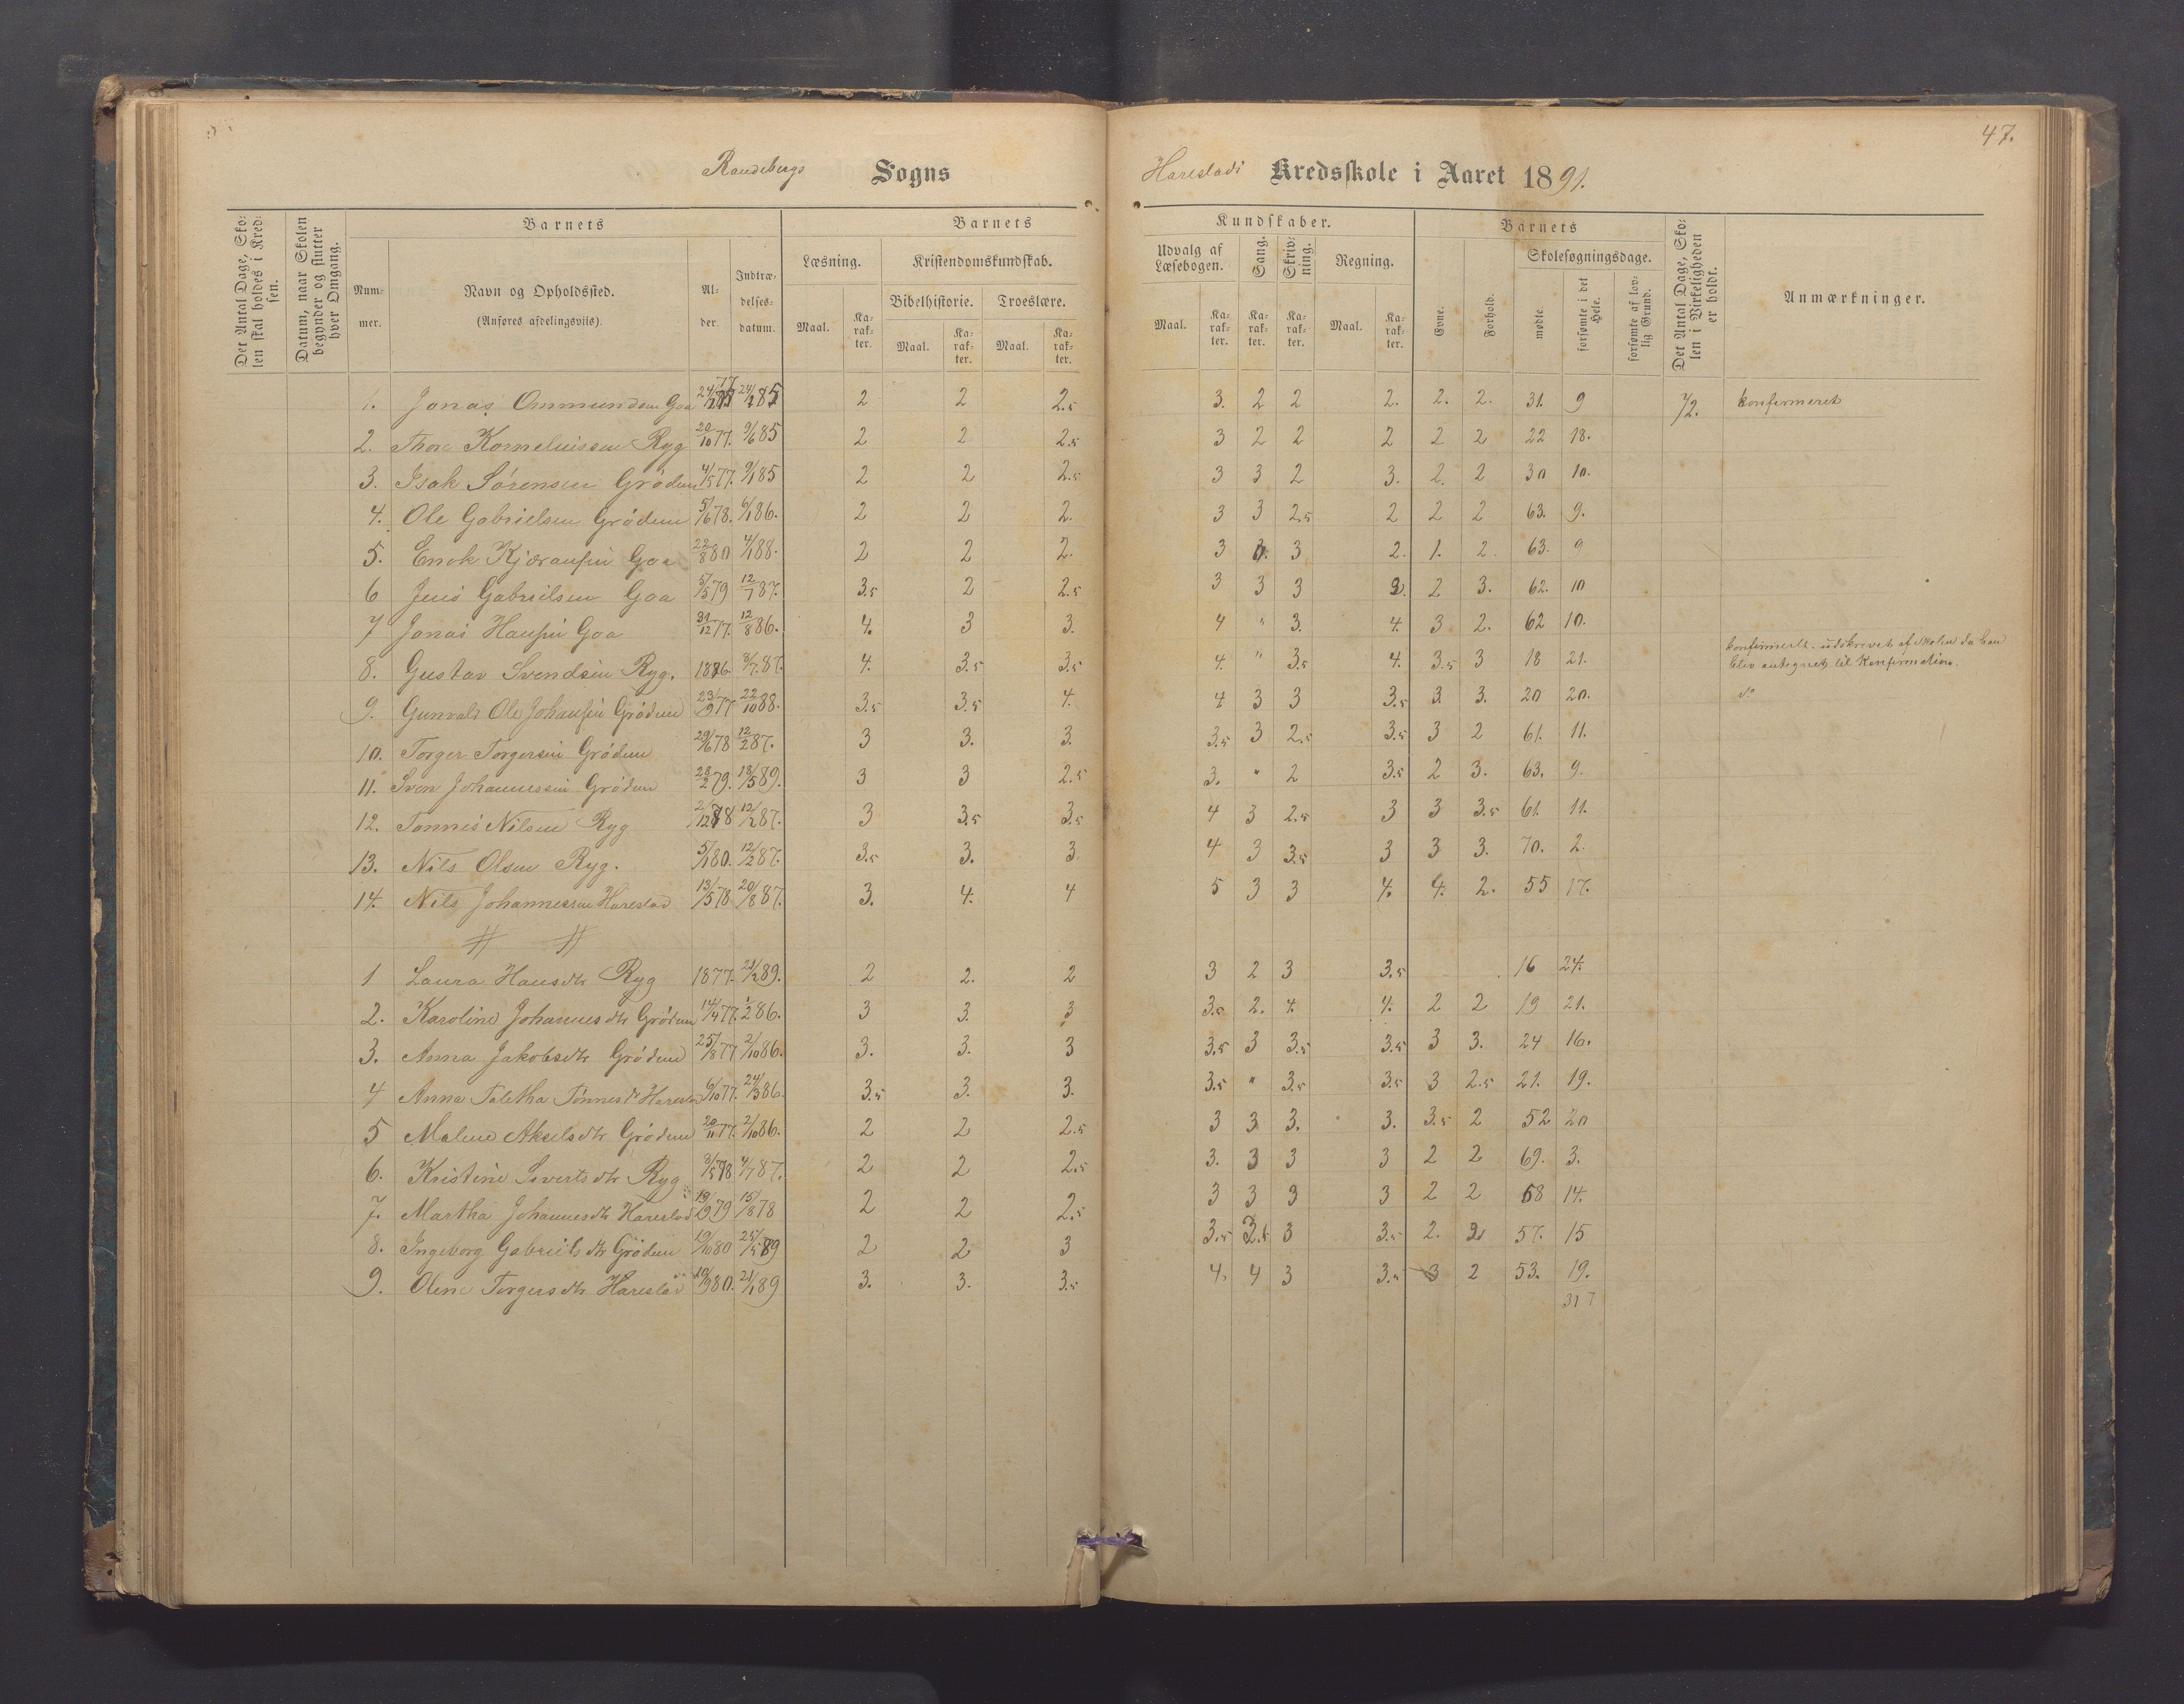 47.
Randebergs Sogns
Harestads Kredsskole i Aaret 1891.
Det Antal Dage, Skolen skal holdes i Kredsen.
Datum, naar Skolen begynder og slutter hver Omgang.
Barnets
Barnets
Kundskaber.
Barnets
Det Antal Dage, Skolen i Virkeligheden er holdt.
Anmærkninger.
Nummer.
Navn og Opholdssted.
(Anføres afdelingsviis).
Alder.
Indtrædelsesdatum.
Læsning.
Kristendomskundskab.
Bibelhistorie.
Troeslære.
Udvalg af Læsebogen.
Sang.
Skrivning.
Regning.
Evne.
Forhold.
Skolesøgningsdage.
mødte.
forsømte i det Hele.
forsømte af lovlig Grund.
Maal.
Karakter.
Maal.
Karakter.
Maal.
Karakter.
Maal.
Karakter.
Karakter.
Karakter.
Maal.
Karakter.
1. Jonas Ommundsen Goa 2 2 2.5 3. 2 2 2. 2. 2. 31. 9 72. konfirmeret
2. Thore Korneliussen Ryg 20/10 77. 9/6 85 2 2 2.5 3 2 2 2 2 2 22 18.
3. Isak Sørensen Grødem 4/5 77. 9/1 85 2 2 2.5 3 3 2 3. 2. 2 30 10.
4. Ole Gabrielsen Grødem 5/6 78. 6/1 86. 2 2 2. 3 3 2.5 2 2 2 63. 9.
5. Enok Goa 22/8 80 4/1 88. 2 2 2. 3 3 2. 1. 2. 63. 9
6 Jens Gabrielsen Goa 5/5 79 12/7 87. 3.5 2 2.5 3 3 3 2. 2 3. 62. 10
7 Jonas Hansen Goa 31/12 77. 12/8 86. 4. 3 3. 4 " 3. 4. 3 2. 62 10.
8. Gustav Svendsen Ryg. 1876. 3/7 87. 4. 3.5 3.5 4. " 3.5 4. 3.5 3 18 21. konfirmert. udskrevet af Skolen da han
blev antegnet til Konfirmation.
9. Gunvald Ole Johansen Grødem 23/9 77 22/10 88. 3.5 3.5 4. 4 3 3 3.5 3. 3. 20 20. do
10. Torger Torgersen Grødem 29/6 78 12/2 87. 3 3. 3. 3.5 3 2.5 3.5 3 2 61. 11.
11. Sven Johannessen Grødem 28/2 79. 18/5 89. 3 3 2.5 3. " 2 3.5 2 3. 63. 9.
12. Tønnes Nilsen Ryg 2/12 78 12/2 87. 3 3.5 3.5 4 3 2.5 3 3 3.5 61. 11.
13. Nils Olsen Ryg. 5/1 80. 12/2 87. 3.5 3. 3. 4 3 3.5 3 3 3. 70. 2.
14. Nils Johannessen Harestad 13/5 78 20/8 87. 3. 4. 4 5 3 3 4. 4. 2. 55 17.
1 Laura Hansdtr Ryg 1877. 21/2 89. 2 2. 2 3 2 3 3.5 16 24.
2. Karoline Johannesdtr Grødem 14/4 77. 1/2 86. 3 3. 3 3.5 2. 4. 4. 2 2 19 21.
3. Anna Jakobsdtr Grødem 25/8 77 2/10 86. 3. 3. 3 3.5 3 3.5 3.5 3 3. 24 16.
4 Anna Taletha Tønnesdr Harestad 6/10 77. 24/3 86. 3.5 3. 3. 3.5 " 3.5 3.5 3 2.5 21. 19.
5 Malene Akselsdtr Grødem 20/11 77. 2/10 86. 2 2 2.5 3 3 3. 3. 3.5 2 52 20
6. Kristine Sivertsdtr Ryg 3/5 78 4/7 87. 2 2 2.5 3. 3 3 3 2 2 69. 3.
7. Martha Johannesdtr Harestad 19/9 79 15/8 78 2 2 2.5 3 3 3 3 2 2 58 14.
8. Ingeborg Gabrielsdtr Grødem 19/10 80 25/5 89 2 2 3 3.5 2.5 3 3.5 2. 2 57. 15
9. Olene Torgersdtr Harestad 19/9 80. 21/1 89 3. 3. 3.5 4. 4 3 3.5 3 2 53. 19.
317